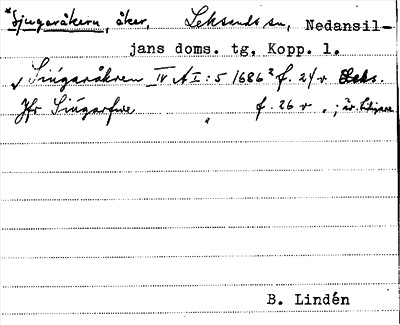 *Sjugaråkern, åker, Leksands sn, Nedansil-
jans doms. tg, Kopp. l.
√ Siugaråkren IV A I:5 1686² f. 24 v
Jfr Siúgarfue " f. 26 v
B. Lindén